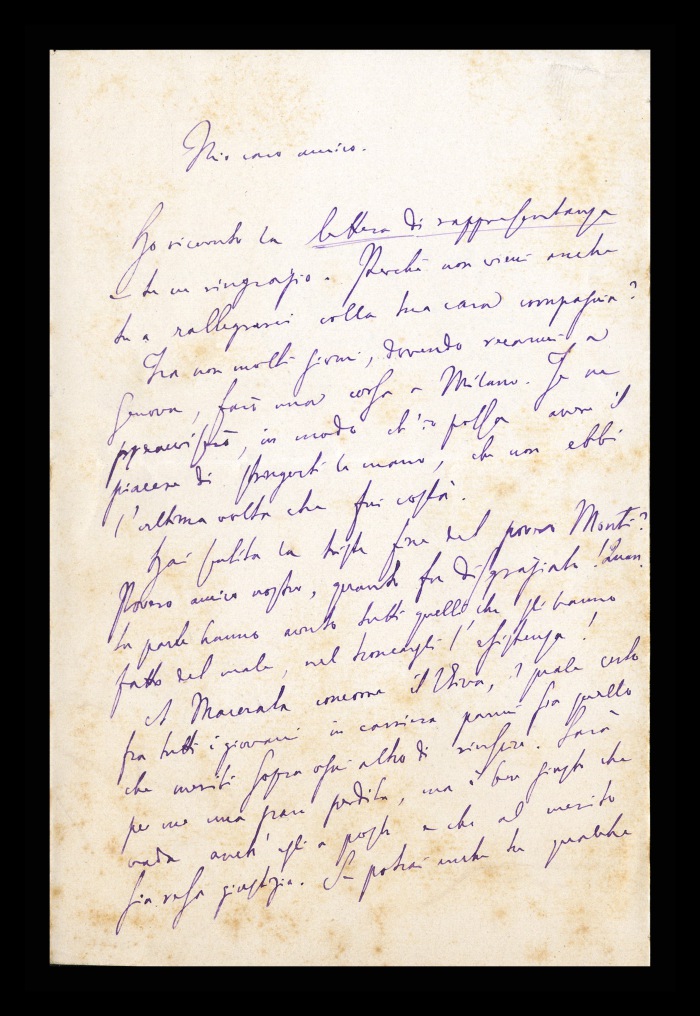 Mio caro amico.
Ho ricevuto la lettera di rappresentanza
e te ne ringrazio. Perchè non vieni anche
tu a rallegrarci colla tua cara compagnia?
Tra non molti giorni, dovendo recarmi a
Genova, farò una corsa a Milano. Te ne
preavviserò, in modo ch'io possa avere il
piacere di stringerti la mano, che non ebbi
l'ultima volta che fui costà.
Hai sentita la triste fine del povero Monti?
Povero amico nostro, quanto fu disgraziato! Quan
ta parte hanno avuto tutti quelli che gli hanno
fatto del male, nel troncargli l'esistenza!
A Macerata concorre il Vhiva, il quale certo
fra tutti i giovani in carriera parmi sia quello
che meriti sopra ogni altro di riuscire. Sarà
per me una gran perdita, ma è ben giusto che
vada anch'egli a posto e che al merito
sia resa giustizia. Se potrai anche tu qualche